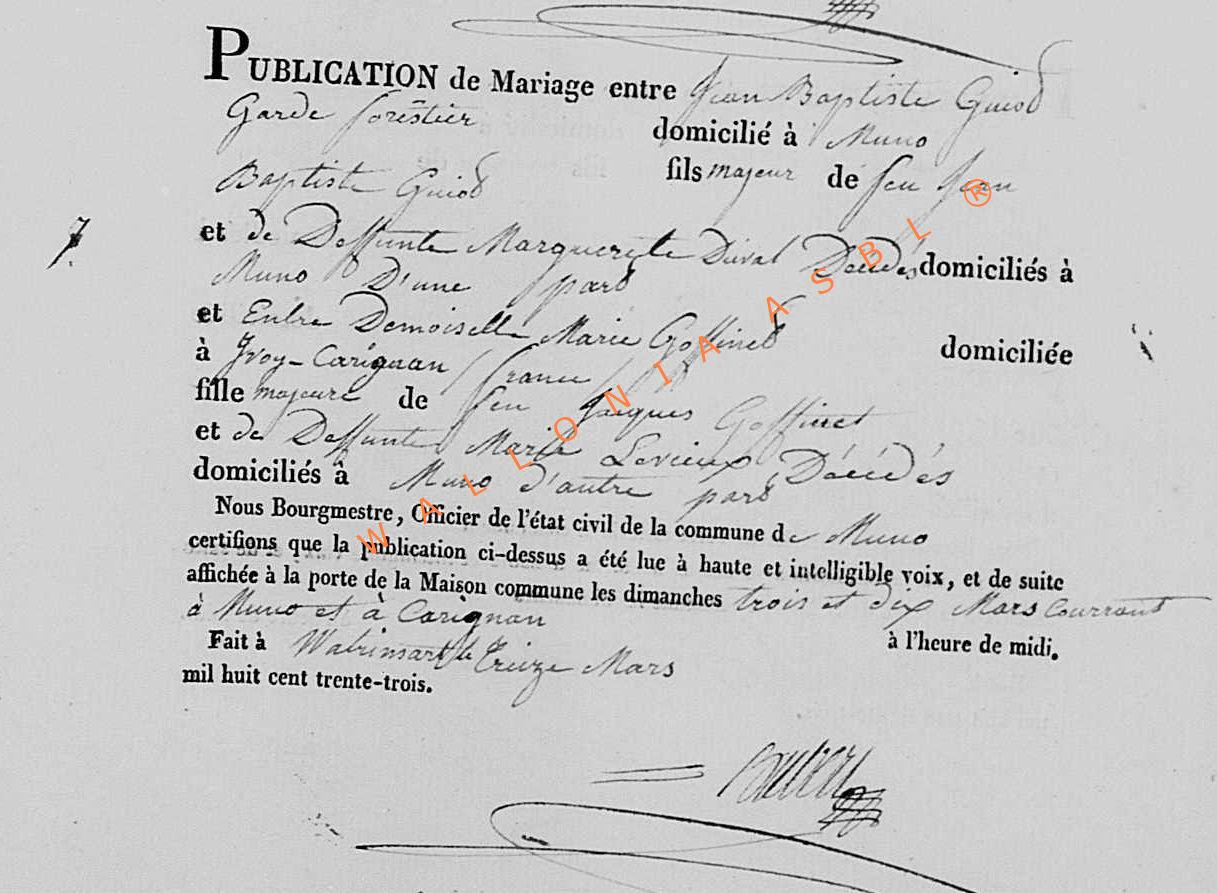 PUBLICATION de Mariage entre Jean Baptiste Guiod
Garde forêstier domicilié à Muno
fils majeur de feu Jean
Baptiste Guiod
7.
et de Deffunte Marguerite Duval Décédés domiciliés à
Muno D'une part
et Entre Demoiselle Marie Goffinet domiciliée
à Yvoy-Carignan / france /
fille majeure de feu Jacques Goffinet
et de Deffunte Marie Levieux Décédés
domiciliés à Muno d'autre part
Nous Bourgmestre, Officier de l'état civil de la commune de Muno
certifions que la publication ci-dessus a été lue à haute et intelligible voix, et de suite
affichée à la porte de la Maison commune les dimanches trois et dix Mars Courrant
à Muno et à Carignan à l'heure de midi.
Fait à Watrinsart le Treize Mars
mil huit cent trente-trois.
WALLONIA ASBL ®